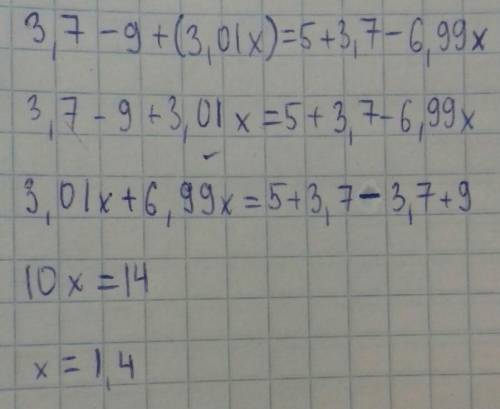 3,7-9+(3,01x)=5+3,7-6,99x
3,7-9+3,01x=5+3,7-6,99x
3,01x+6,99x=5+3,7-3,7+9
10x=14
x=1,4